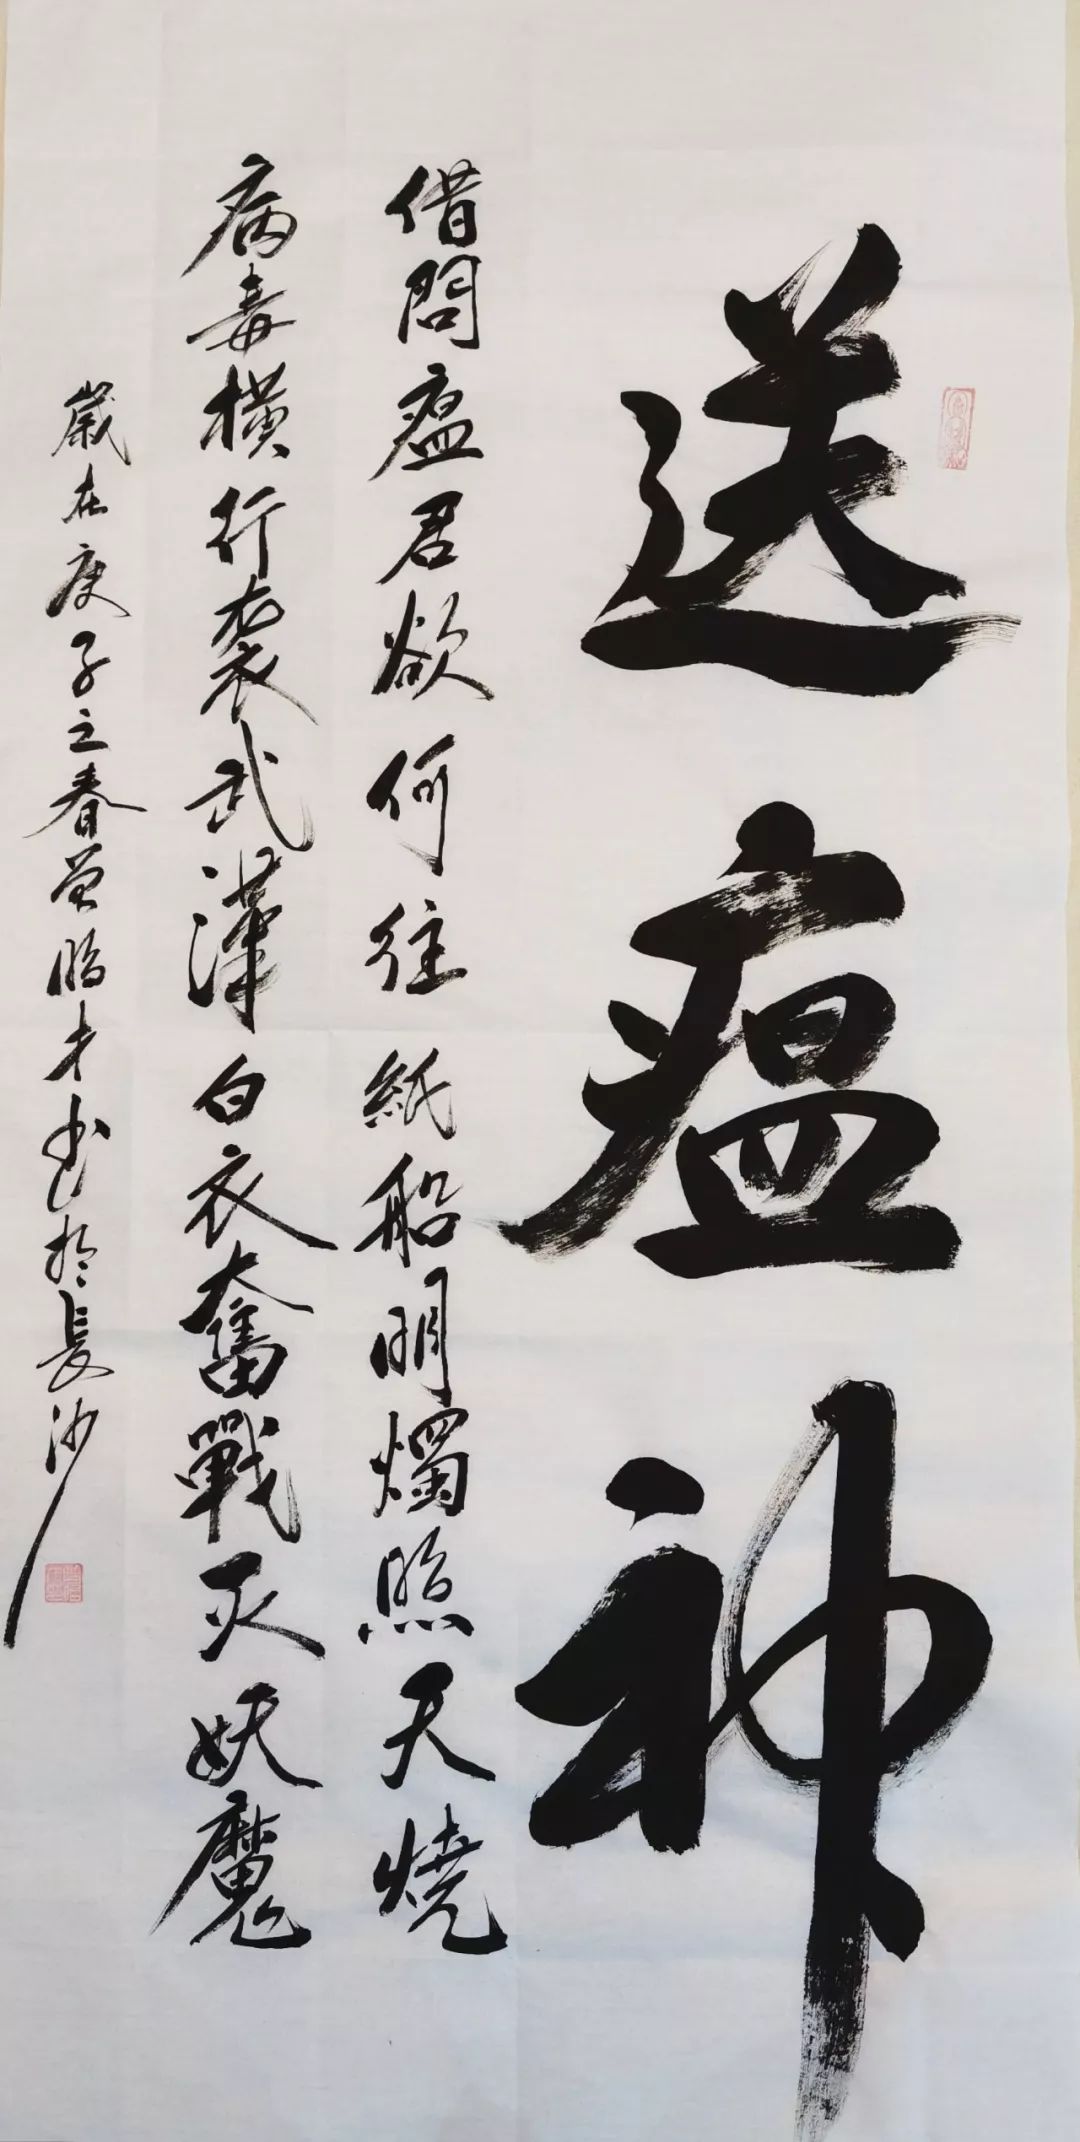 送瘟神
借問瘟君欲何往紙船明燭照天燒
病毒橫行袭武漢白衣奮戰灭妖魔
歲在庚子之春 才书於長沙